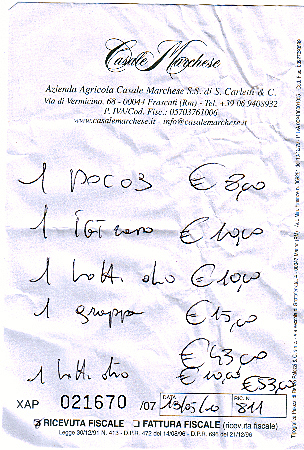 Casale Marchese
Azienda Agricola Casale Marchese S.S. di S. Carletti & C.
Via di Vermicino, 68 - 00044 Frascati (Rm) - Tel. +39 06 9408932
P. IVA/Cod. Fisc.: 05703761006
www.casalemarchese.it - info@casalemarchese.it
1 DOC 03 € 8,00
1 € 10,00
1 bott. olio € 10,00
1 grappa € 15,00
€ 43,00
1 bott. olio € 10,00
€ 53,00
XAP 021670 /07 DATA 13/05/10 RIC. N. 811
RICEVUTA FISCALE FATTURA FISCALE (ricevuta fiscale)
Legge 30/12/91 N. 413 - D.P.R. 472 del 14/08/96 - D.P.R. 696 del 21/12/96